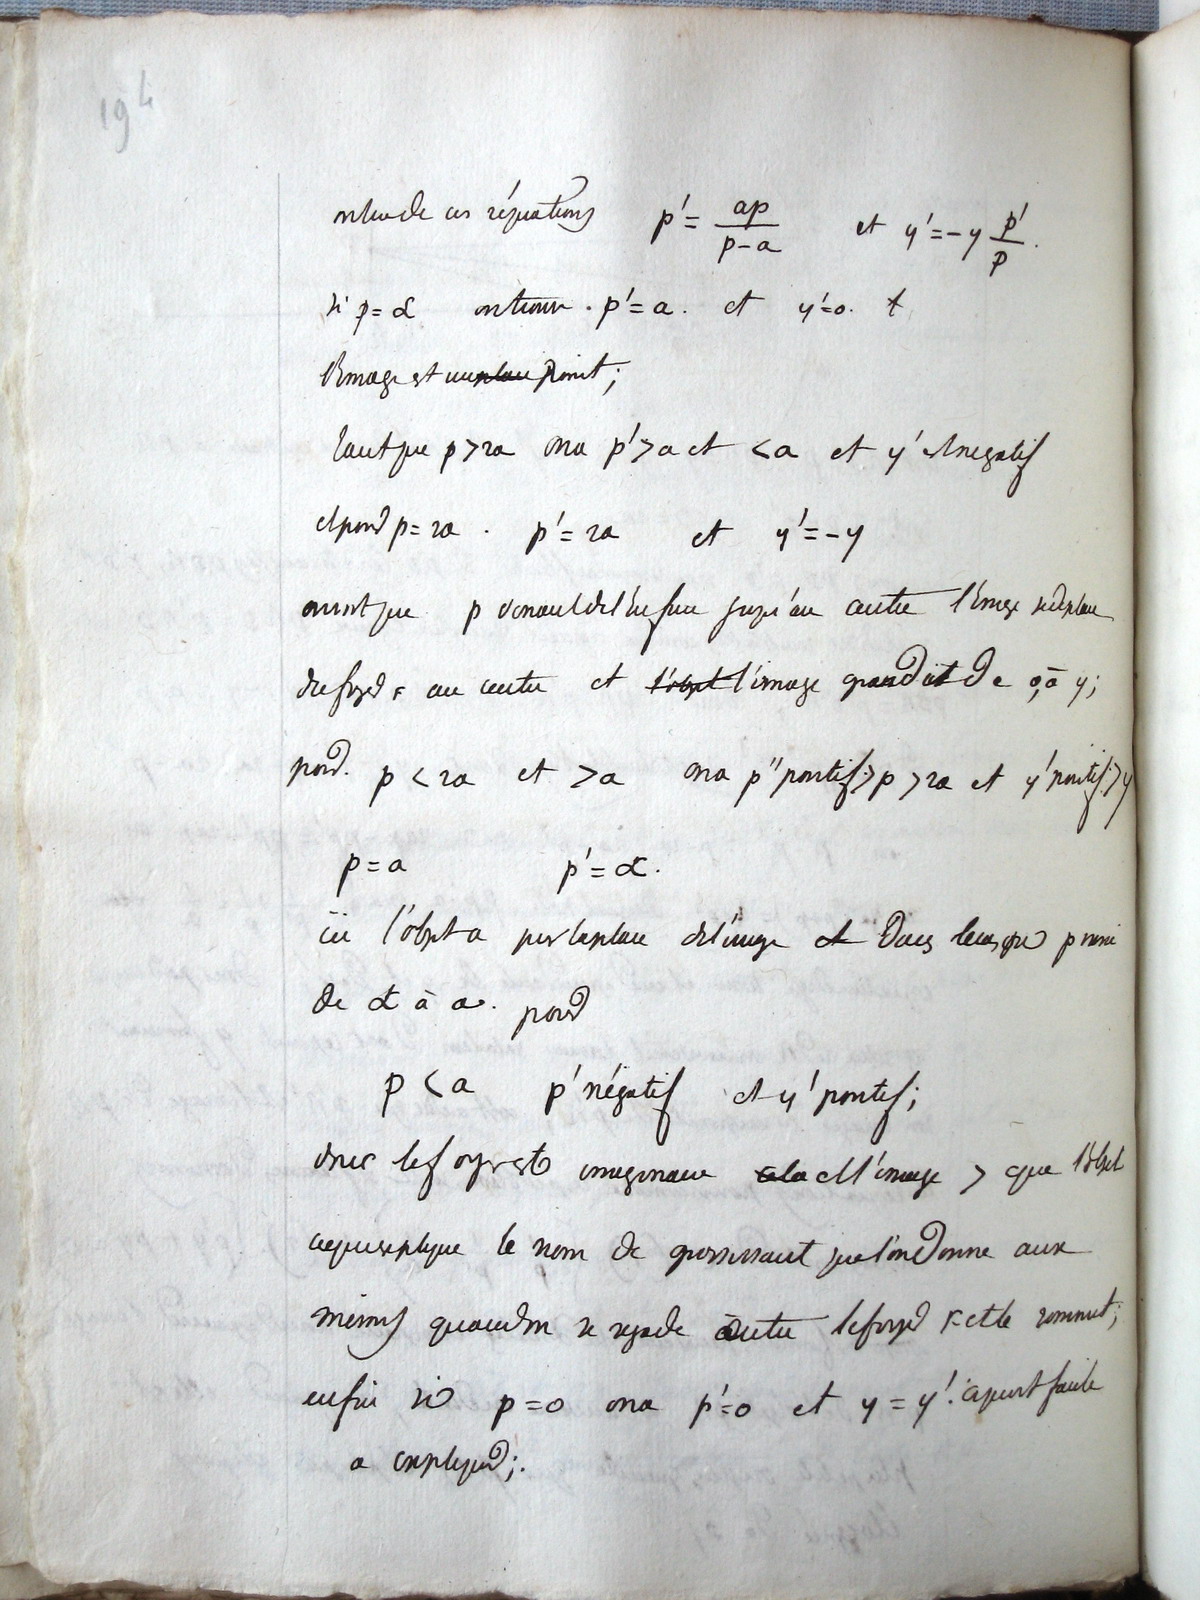 194
on tire de ces équations p' = ap/p-a et y' = -y p'/p.
si p = α on trouve . p' = a. et y' = o.
l'image est un point;
tant que p > 2a on a p' > a et < a et y' est negatif
et pour p = 2a . p' = 2a et y' = -y
p venant de l'infini jusqu'au centre l'image se deplace
du foyer F au centre et l'objet l'image grandit de o, à y;
pour. p < 2a et > a on a p'' positif > p > 2a et y' positif > y
p = a p' = α.
ici l'objet a pris la place de l'image et dans le cas que p
de α à a. pour
p < a p' négatif et y' positif;
donc le foyer est imaginaire et l'image > que l'objet
ce qui explique le nom de grossissant que l'on donne aux
miroirs quand on se regarde entre le foyer F et le sommet;
enfin si p = o on a p' = o et y = y'. ce qui est facile
a expliquer;.